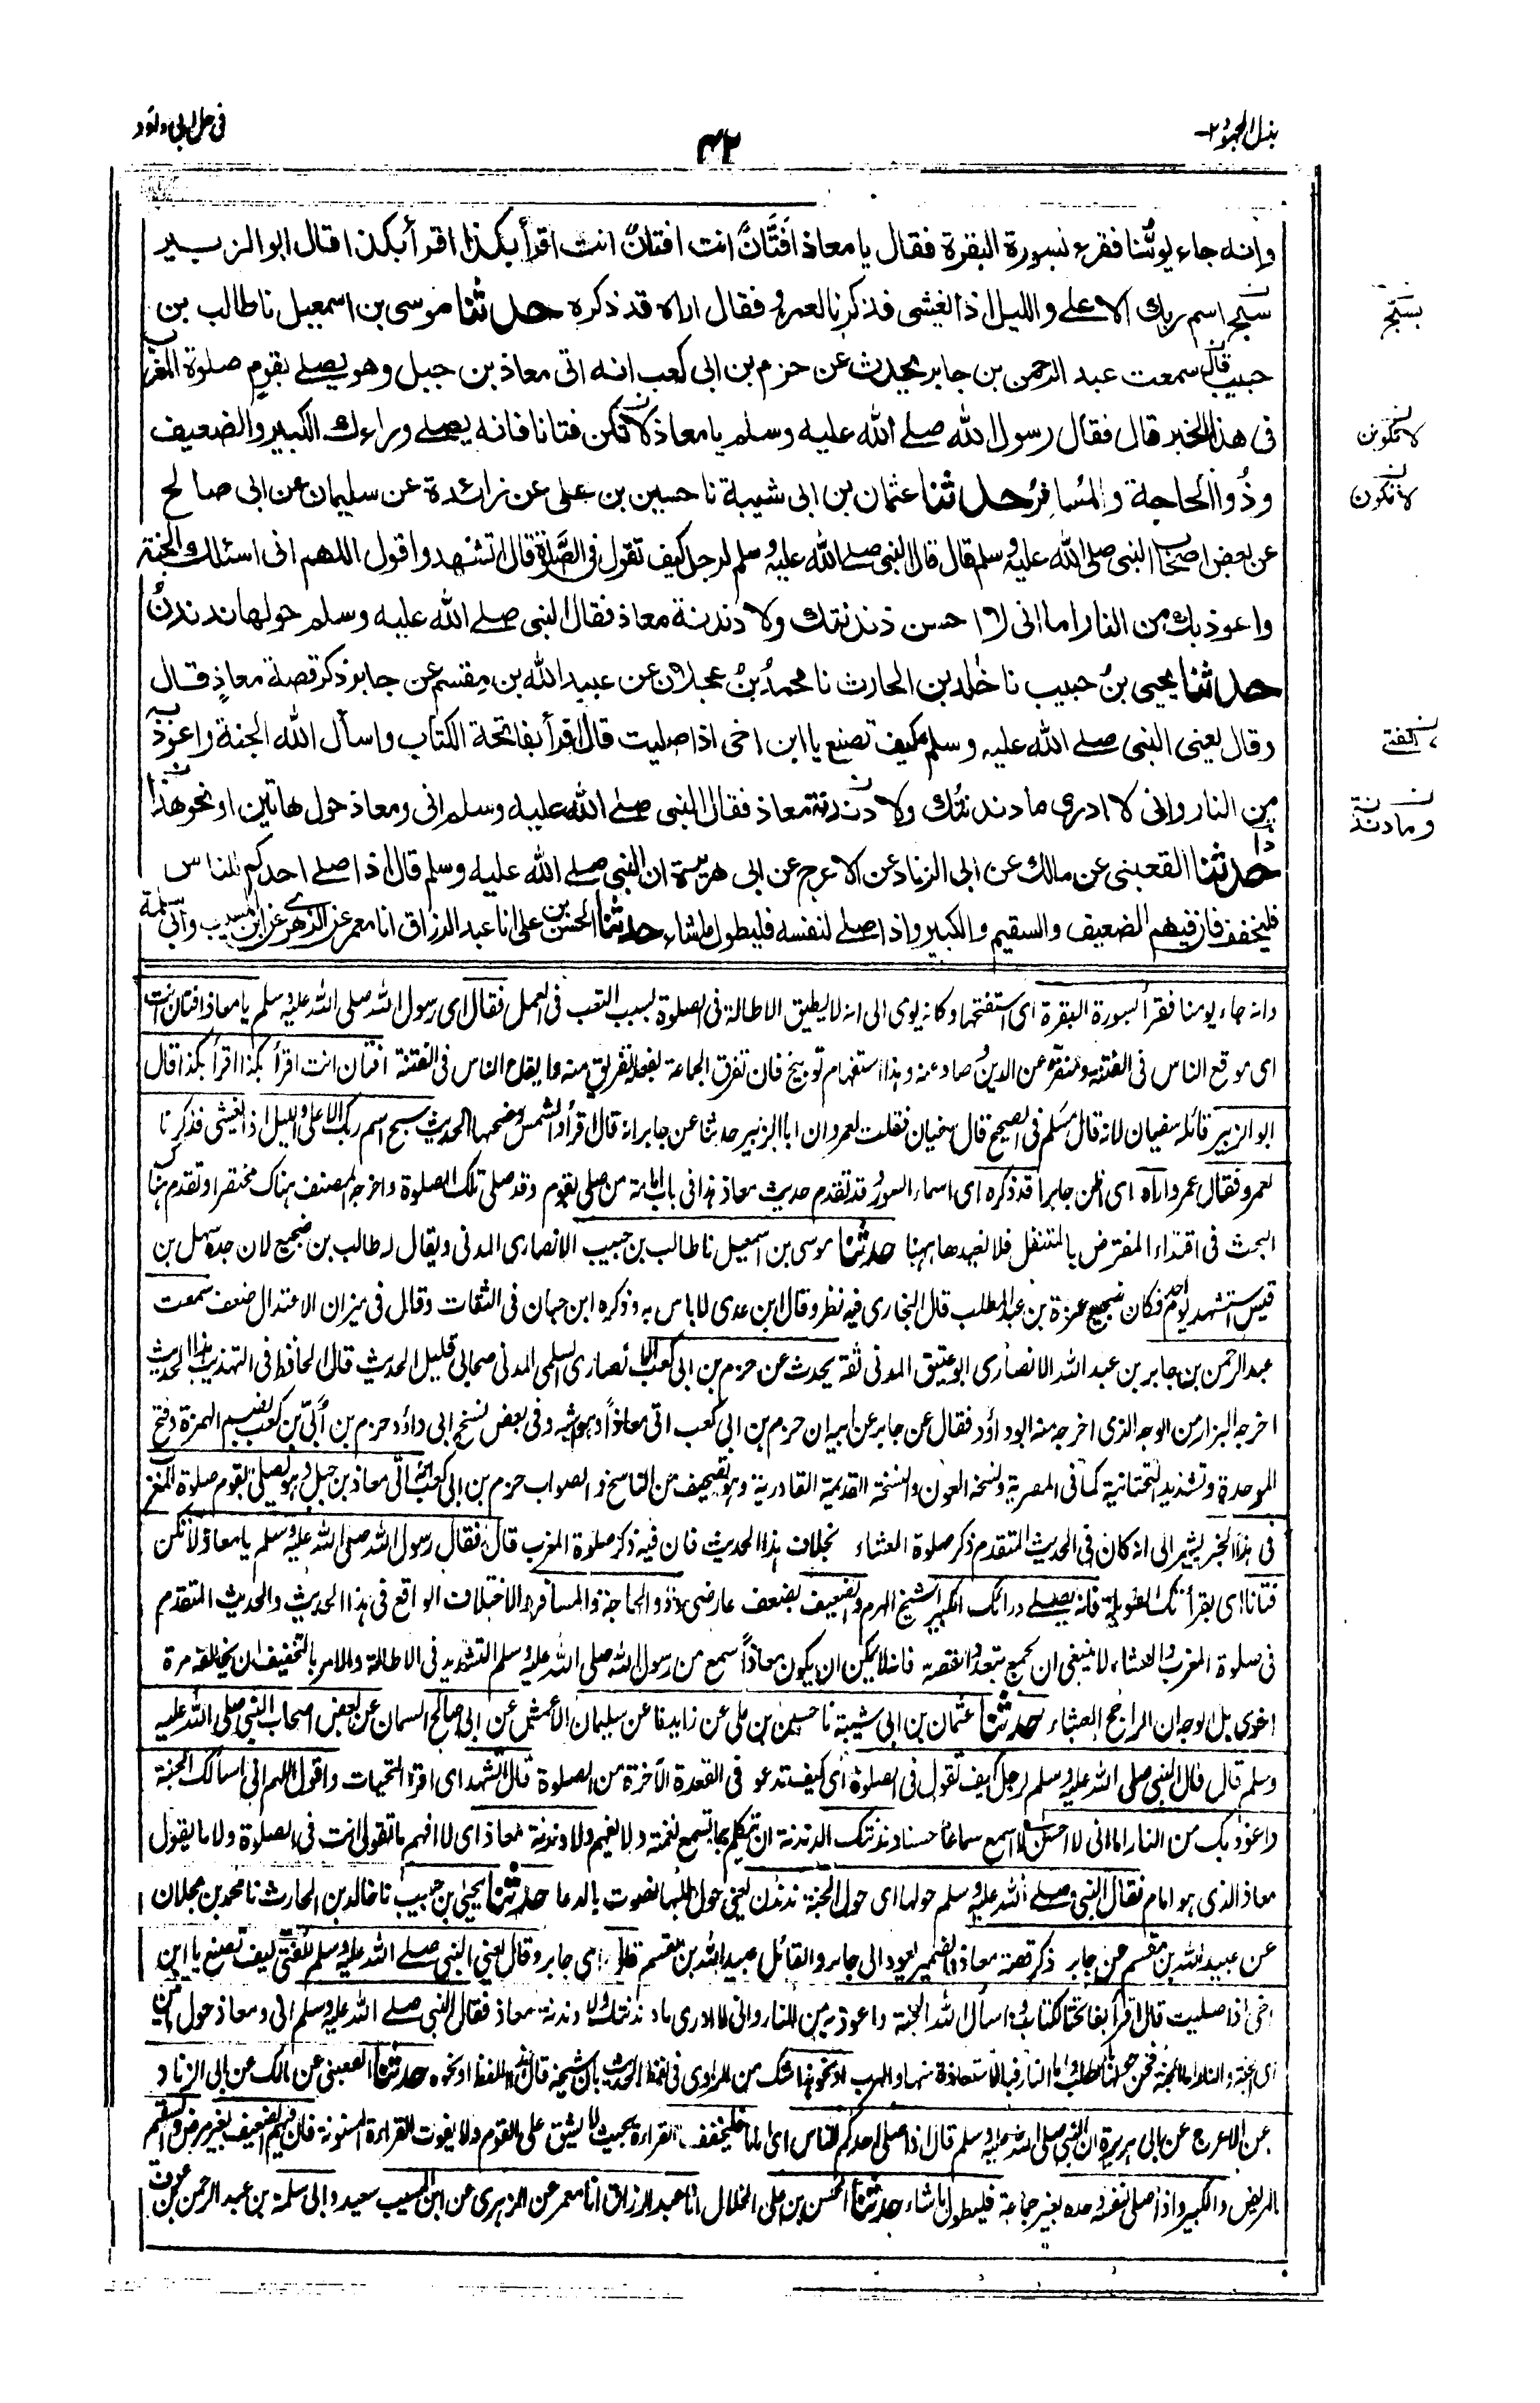 بذل المجهود ٢-
٤٢
في حل ابي داؤد
وانه جاء يؤمنا فقرء بسورة البقرة فقال يا معاذ افَتَّانٌ انت افتانٌ انت اقرأ بكذا اقرأ بكذا قال ابو الزبير
سبح اسم ربك الاعلى والليل اذا يغشى فذكرنا لعمرو فقال اراه قد ذكره حدثنا موسى بن اسمعيل نا طالب بن
حبيب قال سمعت عبد الرحمن بن جابر يحدث عن حزم بن ابى كعب انه اتى معاذ بن جبل وهو يصلي بقوم صلوة المغرب
فى هذا الخبر قال فقال رسول الله صلے الله عليه وسلم يا معاذ لا تكن فتانا فانه يصلے وراءك الكبير والضعيف
وذُو الحاجة والمُسافرُ حدثنا عثمان بن ابى شيبة نا حسين بن على عن زائدة عن سليمان عن ابى صالح
عن بعض اصحاب النبى صلى الله عليه وسلم قال قال النبى صلے الله عليه وسلم لرجل كيف تقول فى الصَّلوة قال اتشهد واقول اللهم انى اسئلك الجنة
واعوذ بك من النار اما انى لا احسن دندنتك ولا دندنة معاذ فقال النبى صلے الله عليه وسلم حولها ندندنُ
حدثنا يحيى بنُ حبيب نا خٰلد بن الحارث نا محمدُ بنُ عجلان عن عبيد الله بن مِقسم عن جابر ذكر قصة معاذٍ قال
وقال يعنى النبى صلے الله عليه وسلم كيف تصنع يا ابن اخى اذا صليت قال اقرأ بفاتحة الكتاب واسأل الله الجنة واعوذ به
من النار وانى لا ادرى ما دندنتُك ولا دندنة معاذ فقال النبى صلے الله عليه وسلم انى ومعاذ حول هاتين او نحو هذا
حدثنا القعبنى عن مالك عن ابى الزناد عن الاعرج عن ابى هريرة ان النبى صلے الله عليه وسلم قال اذا صلے احدكم للناس
فليخفف فان فيهم الضعيف والسقيم والكبير واذا صلے لنفسه فليطول ما شاء حدثنا الحسن بن على انا عبد الرزاق انا معمر عن الزهرى عن ابن المسيب وابى سلمة
بسبّح
لا تكونن
لا تكون
للفتى
وما دندنة
وانه جاء يومنا فقرأ بسورة البقرة اى استفتحها وكانه يومى الى انه لا يطيق الاطالة فى الصلوة بسبب التعب فى العمل فقال اى رسول الله صلى الله عليه وسلم يا معاذ افتان انت
اى موقع الناس فى الفتنة ومنفر عن الدين وصاد عنه وهذا استفهام توبيخ فان تفرق الجماعة بفعله تفريق منه وايقاع الناس فى الفتنة افتان انت اقرأ بكذا اقرأ بكذا قال
ابو الزبير قائله سفيان لانه قال مسلم فى الصحيح قال سفيان فقلت لعمرو ان ابا الزبير حدثنا عن جابر انه قال اقرأ والشمس وضحها الحديث سبح اسم ربك الاعلى والليل اذا يغشى فذكرنا
لعمرو فقال عمرو اراه اى اظن جابرا قد ذكره اى اسماء السور قد تقدم حديث معاذ هذا فى باب امامة من صلى بقوم وقد صلى تلك الصلوة واخرجه المصنف هناك مختصرا وتقدم هنا
البحث فى اقتداء المفترض بالمتنفل فلا نعيدها ههنا حدثنا موسى بن اسمعيل نا طالب بن حبيب الانصارى المدنى ويقال له طالب بن ضجيع لان جده سهل بن
قيس استشهد يوم احد فكان ضجيع حمزة بن عبد المطلب قال البخارى فيه نظر وقال ابن عدى لا باس به وذكره ابن حبان فى الثقات وقال فى ميزان الاعتدال ضعف سمعت
عبد الرحمن بن جابر بن عبد الله الانصارى ابو عتيق المدنى ثقة يحدث عن حزم بن ابى كعب الانصارى السلمى المدنى صحابى قليل الحديث قال الحافظ فى التهذيب هذا الحديث
اخرجه البزار من الوجه الذى اخرجه منه ابو داؤد فقال عن جابر عن ابيه ان حزم بن ابى كعب اتى معاذاً وهو اشبه وفى بعض نسخ ابى داؤد حزم بن أُبىّ بن كعب بضم الهمزة وفتح
الموحدة وتشديد التحتانية كما فى المصرية ونسخة العون والنسخة القديمة القادرية وهو تصحيف من الناسخ والصواب حزم بن ابى كعب انه اتى معاذ بن جبل وهو يصلى بقوم صلوة المغرب
فى هذا الخبر يشير الى انه كان فى الحديث المتقدم ذكر صلوة العشاء بخلاف هذا الحديث فان فيه ذكر صلوة المغرب قال فقال رسول الله صلى الله عليه وسلم يا معاذ لا تكن
فتانا اى بقرأتك الطويلة فانه يصلے ورائك الكبير الشيخ الهرم والضعيف بضعف عارضى وذو الحاجة والمسافر والاختلاف الواقع فى هذا الحديث والحديث المتقدم
فى صلوة المغرب والعشاء لا ينبغى ان يجمع بتعدد القصة فانه لا يمكن ان يكون معاذاً سمع من رسول الله صلى الله عليه وسلم التشديد فى الاطالة والامر بالتخفيف ان يخالفه مرة
اخرى بل الوجه ان الراجح العشاء حدثنا عثمان بن ابى شيبة نا حسين بن على عن زايدة عن سليمان الاعمش عن ابى صالح السمان عن بعض اصحاب النبى صلى الله عليه
وسلم قال قال النبى صلى الله عليه وسلم لرجل كيف تقول فى الصلوة اى كيف تدعو فى القعدة الآخرة من الصلوة قال اتشهد اى اقرء التحيات واقول اللهم انى اسألك الجنة
واعوذ بك من النار اما انى لا احسن اى لا اسمع سماعا حسنا دندنتك الدندنة ان تتكلم بما تسمع نغمته ولا يفهم ولا دندنة معاذ اى لا افهم ما تقول انت فى الصلوة ولا ما يقول
معاذ الذى هو امام فقال النبى صلے الله عليه وسلم حولها اى حول الجنة ندندن يعنى حول طلبها نصوت بالدعا حدثنا يحيى بن حبيب نا خالد بن الحارث نا محمد بن عجلان
عن عبيد الله بن مقسم عن جابر ذكر قصة معاذ الضمير يعود الى جابر والقائل عبيد الله بن مقسم قال اى جابر وقال يعنى النبى صلے الله عليه وسلم للفتى كيف تصنع يا ابن
اخى اذا صليت قال اقرأ بفاتحة الكتاب واسأل الله الجنة واعوذ به من النار وانى لا ادرى ما دندنتك ولا دندنة معاذ فقال النبى صلے الله عليه وسلم انى ومعاذ حول هاتين
اى الجنة والنار اما الجنة فنحن حولها بالطلب واما النار فبالاستعاذة منها والهرب او نحو هذا شك من الراوى فى لفظ الحديث بان شيخه قال هذا اللفظ او نحوه حدثنا القعنبى عن مالك عن ابى الزناد
عن الاعرج عن ابى هريرة ان النبى صلى الله عليه وسلم قال اذا صلى احدكم للناس اى اماما فليخفف القراءة بحيث لا يشق على القوم ولا يفوت القراءة المسنونة فان فيهم الضعيف بغير مرض والسقيم
المريض والكبير واذا صلى لنفسه وحده بغير جماعة فليطول ما شاء حدثنا الحسن بن على الخلال انا عبد الرزاق انا معمر عن الزهرى عن ابن المسيب سعيد وابى سلمة بن عبد الرحمن بن عوف